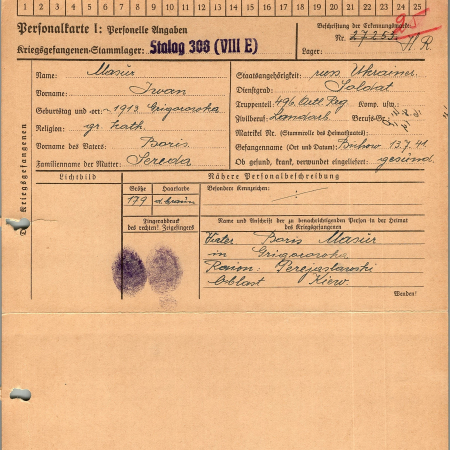 1 2 3 4 5 6 7 8 9 10 11 12 13 14 15 16 17 18 19 20 21 22 23 24 25
Personalkarte I: Personelle Angaben
Kriegsgefangenen-Stammlager: Stalag 308 (VIII E)
Beschriftung der Erkennungsmarke
Nr. 27253
Lager:
25
Des Kriegsgefangenen
Name: Masur
Vorname: Iwan
Geburtstag und -ort: 1913 Grigorowka
Religion: gr. kath.
Vorname des Vaters: Boris
Familienname der Mutter: Sereda
Staatsangehörigkeit: russ. Ukrainer
Dienstgrad: Soldat
Truppenteil: 496 Reg Komp. usw.:
Zivilberuf: Landarb. Berufs-Gr.:
Matrikel Nr. (Stammrolle des Heimatstaates):
Gefangennahme (Ort und Datum): Buchow 13.7.41
Ob gesund, krank, verwundet eingeliefert: gesund
Lichtbild
Nähere Personalbeschreibung
Größe Haarfarbe
179 d. braun
Besondere Kennzeichen:
Fingerabdruck
des rechten! Zeigefingers
Name und Anschrift der zu benachrichtigenden Person in der Heimat
des Kriegsgefangenen
Vater Boris Masur
in Grigorowka
Rayon: Perejaslawski
Oblast Kiew
Wenden!